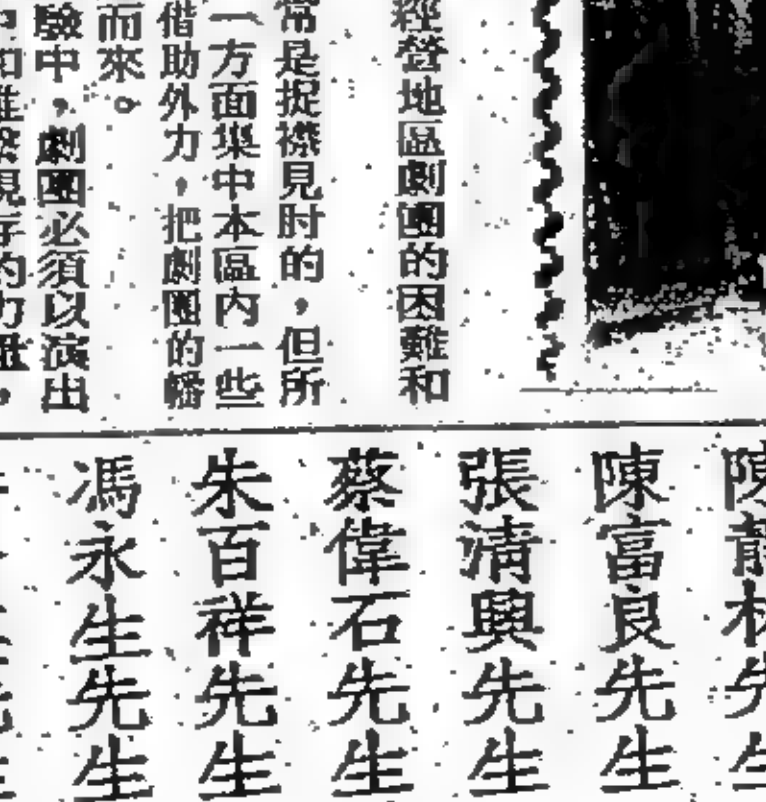 經營地區劇團的困難和
常是捉襟見肘的，但所
一方面集中本區內一些
借助外力，把劇團的幡
而來。
驗中，劇團必須以演出
陳富良先生
張清興先生
蔡偉石先生
朱百祥先生
馮永生先生